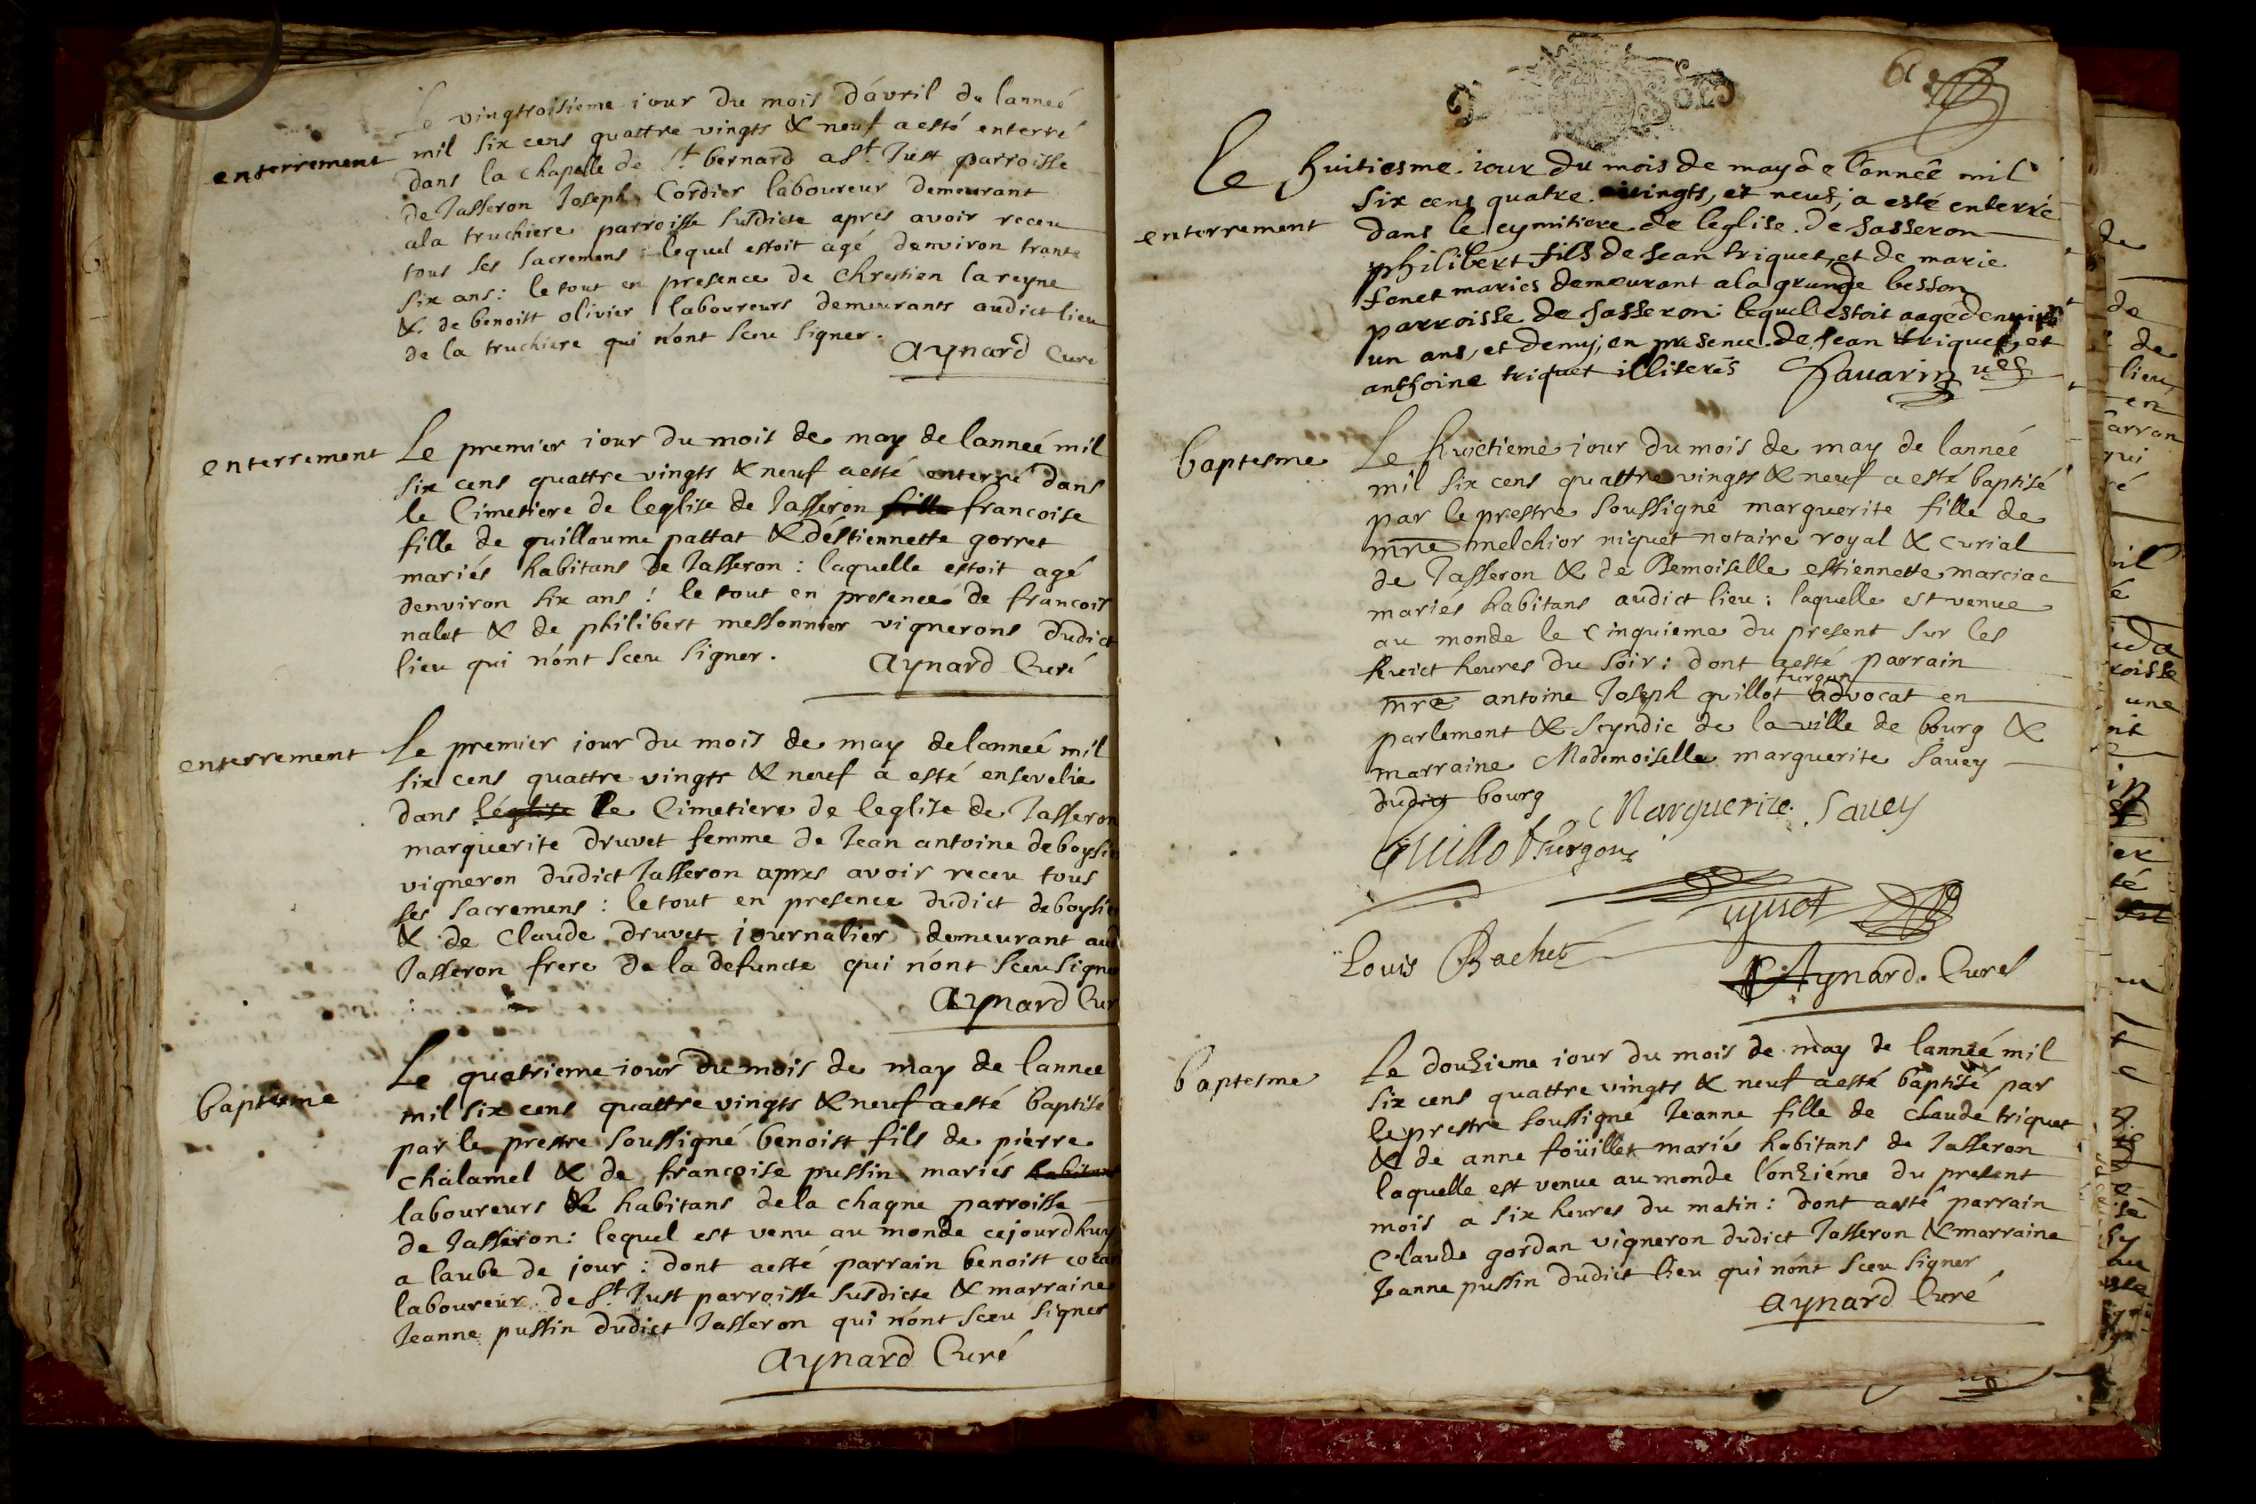 Le vingttroisieme iour du mois d'avril de lanneé
enterrement mil six cens quattre vingts & neuf a esté enterré
dans la chapelle de St bernard a St Just parroisse
de Jasseron Joseph Cordier laboureur demeurant
a la truchiere parroisse susdicte apres avoir receu
tous ses sacremens : lequel estoit agé denviron trante
six ans : le tout en presence de chrestien lareyne
& de benoist olivier laboureurs demeurants audict lieu
de la truchiere qui n'ont sceu signer.
Aynard Curé
enterrement Le premier iour du mois de may de lanneé mil
six cens quattre vingts & neuf a esté enterré dans
le Cimetiere de leglise de Jasseron fille francoise
fille de guillaume pattat & d'éstiennette gorret
mariés habitans de Jasseron : laquelle estoit agé
denviron six ans ! le tout en presence de francois
nalet & de philibert messonnier vignerons dudict
lieu qui n'ont sceu signer.
Aynard Curé
enterrement Le premier iour du mois de may de lanneé mil
six cens quattre vingts & neuf a esté ensevelie
dans léglise le Cimetiere de leglise de Jasseron
marguerite druvet femme de Jean antoine deboysie
vigneron dudict Jasseron apres avoir receu tous
ses sacremens : le tout en presence dudict deboysie
& de claude druvet journalier demeurant aud
Jasseron frere de la defuncte qui n'ont sceu signe
Aynard Cur
baptesme Le quatrieme iour du mois de may de lannee
mil six cens quattre vingts & neuf a esté baptisé
par le prestre soussigné benoist fils de pierre
chalamel & de françoise pussin mariés habitans
laboureurs & habitans de la chagne parroisse
de Jasseron : lequel est venu au monde cejourdhuy
a laube de jour : dont a esté parrain benoist
laboureur de St Just parroisse susdicte & marraine
Jeanne pussin dudict Jasseron qui n'ont sceu signer
Aynard Curé
2 Sols
Le huitiesme iour du mois de may de l'année mil
six cens quatre vingts, et neuf, a esté enterré
enterrement dans le cymitiere de leglise de Jasseron
philibert fils de Jean triquet, et de marie
fonet mariés demeurant a la grange besson
parroisse de Jasseron : lequel estoit aagé denviron
un ans, et demy, en presence de Jean triquet, et
anthoine triquet illiterés Favarin
baptesme Le huictieme iour du mois de may de lanneé
mil six cens quattre vingts & neuf a esté baptisé
par le prestre soussigné marguerite fille de
mre melchior niquet notaire royal & curial
de Jasseron & de Demoiselle estiennette marciac
mariés habitans audict lieu : laquelle est venue
au monde le cinquieme du present sur les
huict heures du soir : dont a esté parrain
furgon
mre antoine Joseph guillot advocat en
parlement & scyndic de la ville de bourg &
marraine Mademoiselle marguerite Savey
dudict bourg
Marguerite Savey
Guillot furgon
Louis Bachet
Aynard Curé
baptesme Le douzieme iour du mois de may de lanneé mil
six cens quattre vingts & neuf a esté baptisé par
le prestre soussigné Jeanne fille de claude triquet
& de anne foüillet mariés habitans de Jasseron
laquelle est venue au monde l'onziéme du present
mois a six heures du matin : dont a esté parrain
Claude gordan vigneron dudict Jasseron & marraine
Jeanne pussin dudict lieu qui n'ont sceu signer
Aynard Curé